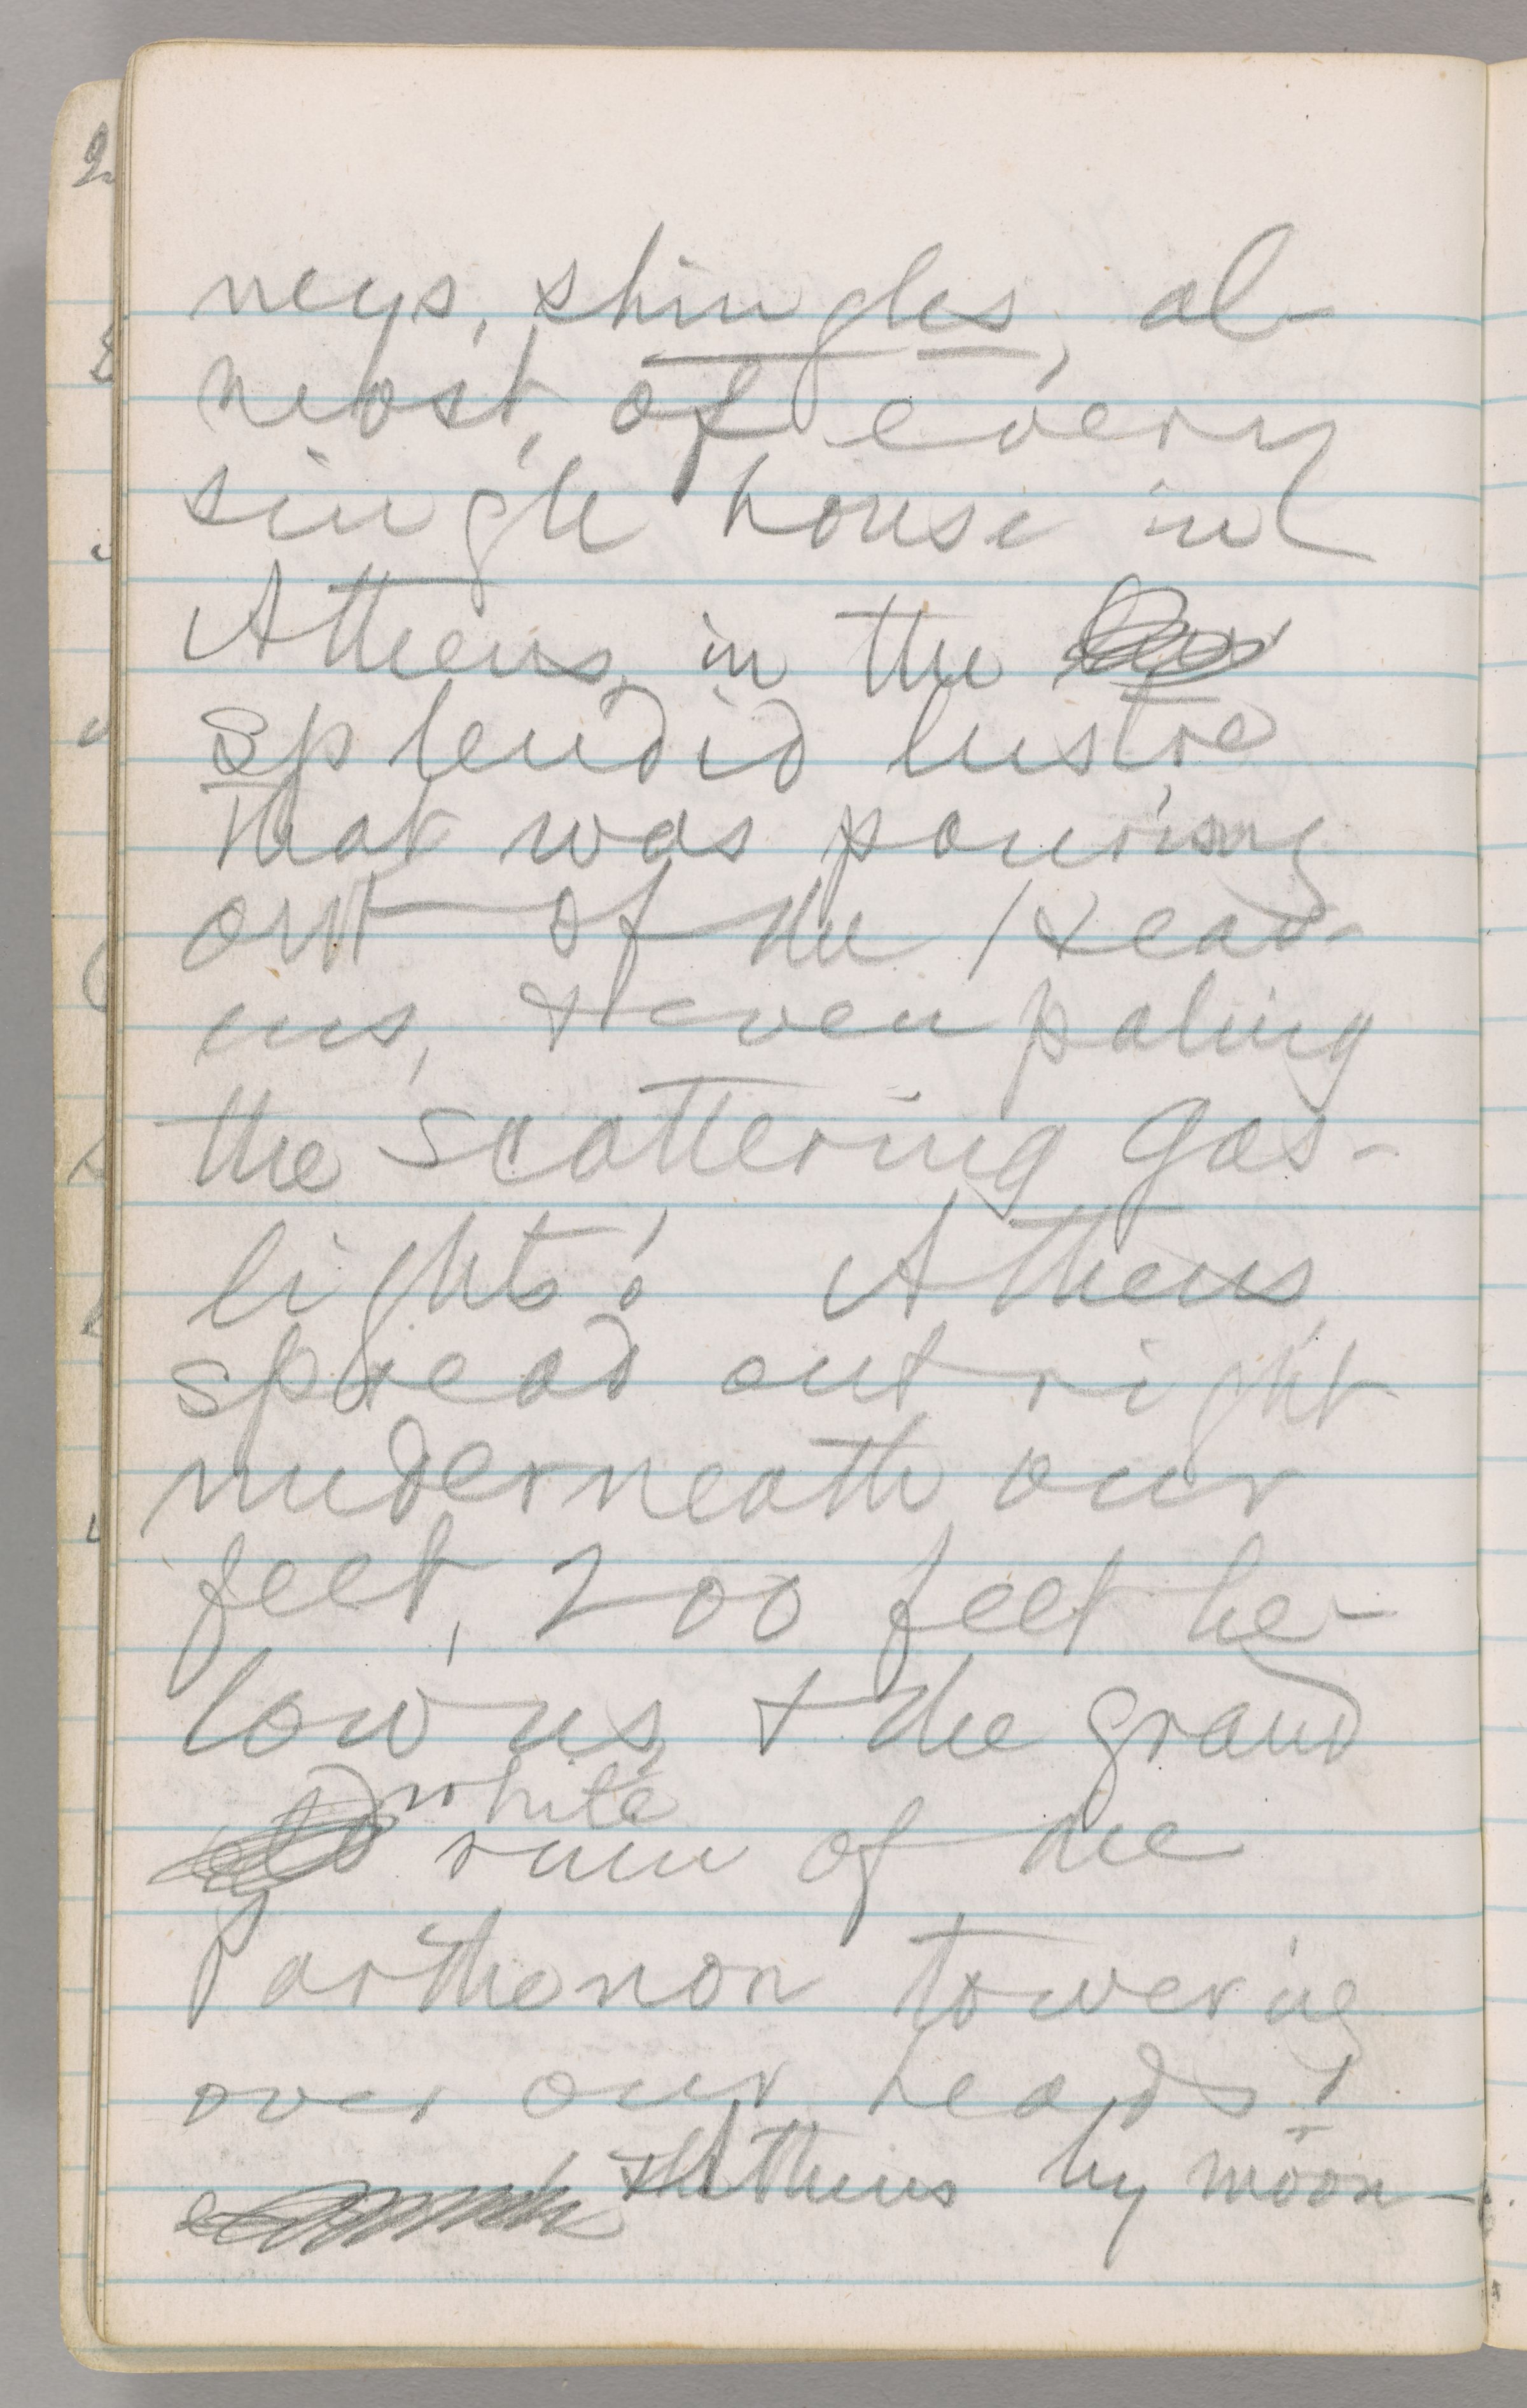 neys, shingles, al-
most, of every
single house in
Athens, in the
splendid lustre
that was pouring
out of the Heav-
ens, & even paling
the scattering gas-
lights! Athens
spread out right
underneath our
feet, 200 feet be-
low us, & the grand
white
old ruin of the
Parthenon towering
over our heads!
Athens by moon-